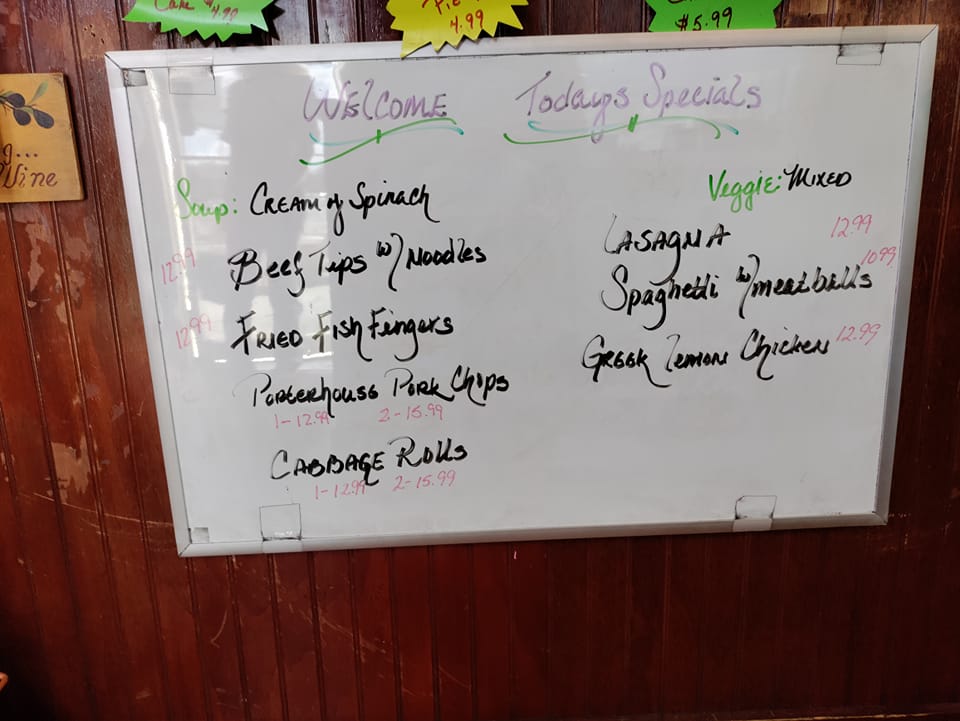 Cake $4.99
Pie
4.99
$5.99
Welcome Todays Specials
g...
Wine
Soup: Cream of Spinach
Veggie: Mixed
12.99 Beef Tips w/ Noodles
Lasagna 12.99
Spaghetti w/meatballs 10.99
12.99 Fried Fish Fingers
Greek Lemon Chicken 12.99
Porterhouse Pork Chops
1-12.99 2-15.99
Cabbage Rolls
1-12.99 2-15.99